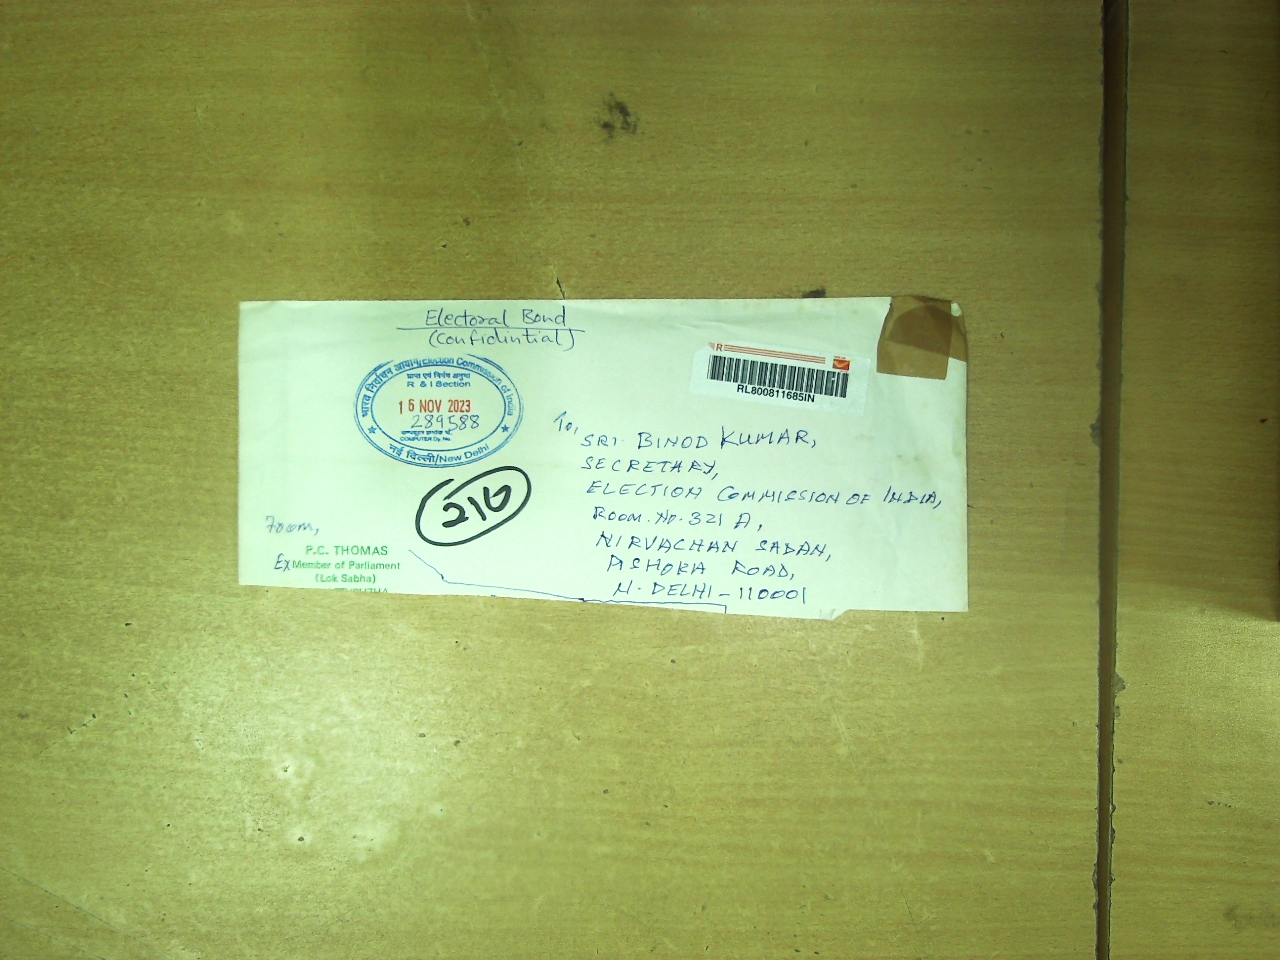 Electoral Bond
(Confidintial)
भारत निर्वाचन आयोग/Election Commission of India
R & I Section
16 NOV 2023
289588
COMPUTER Dy. No.
नई दिल्ली/New Delhi
RL800811685IN
216
To,
SRI. BINOD KUMAR,
SECRETARY,
ELECTION COMMISSION OF INDIA,
ROOM. NO. 321 A,
NIRVACHAN SADAN,
ASHOKA ROAD,
N. DELHI - 110001
From,
P.C. THOMAS
Ex Member of Parliament
(Lok Sabha)